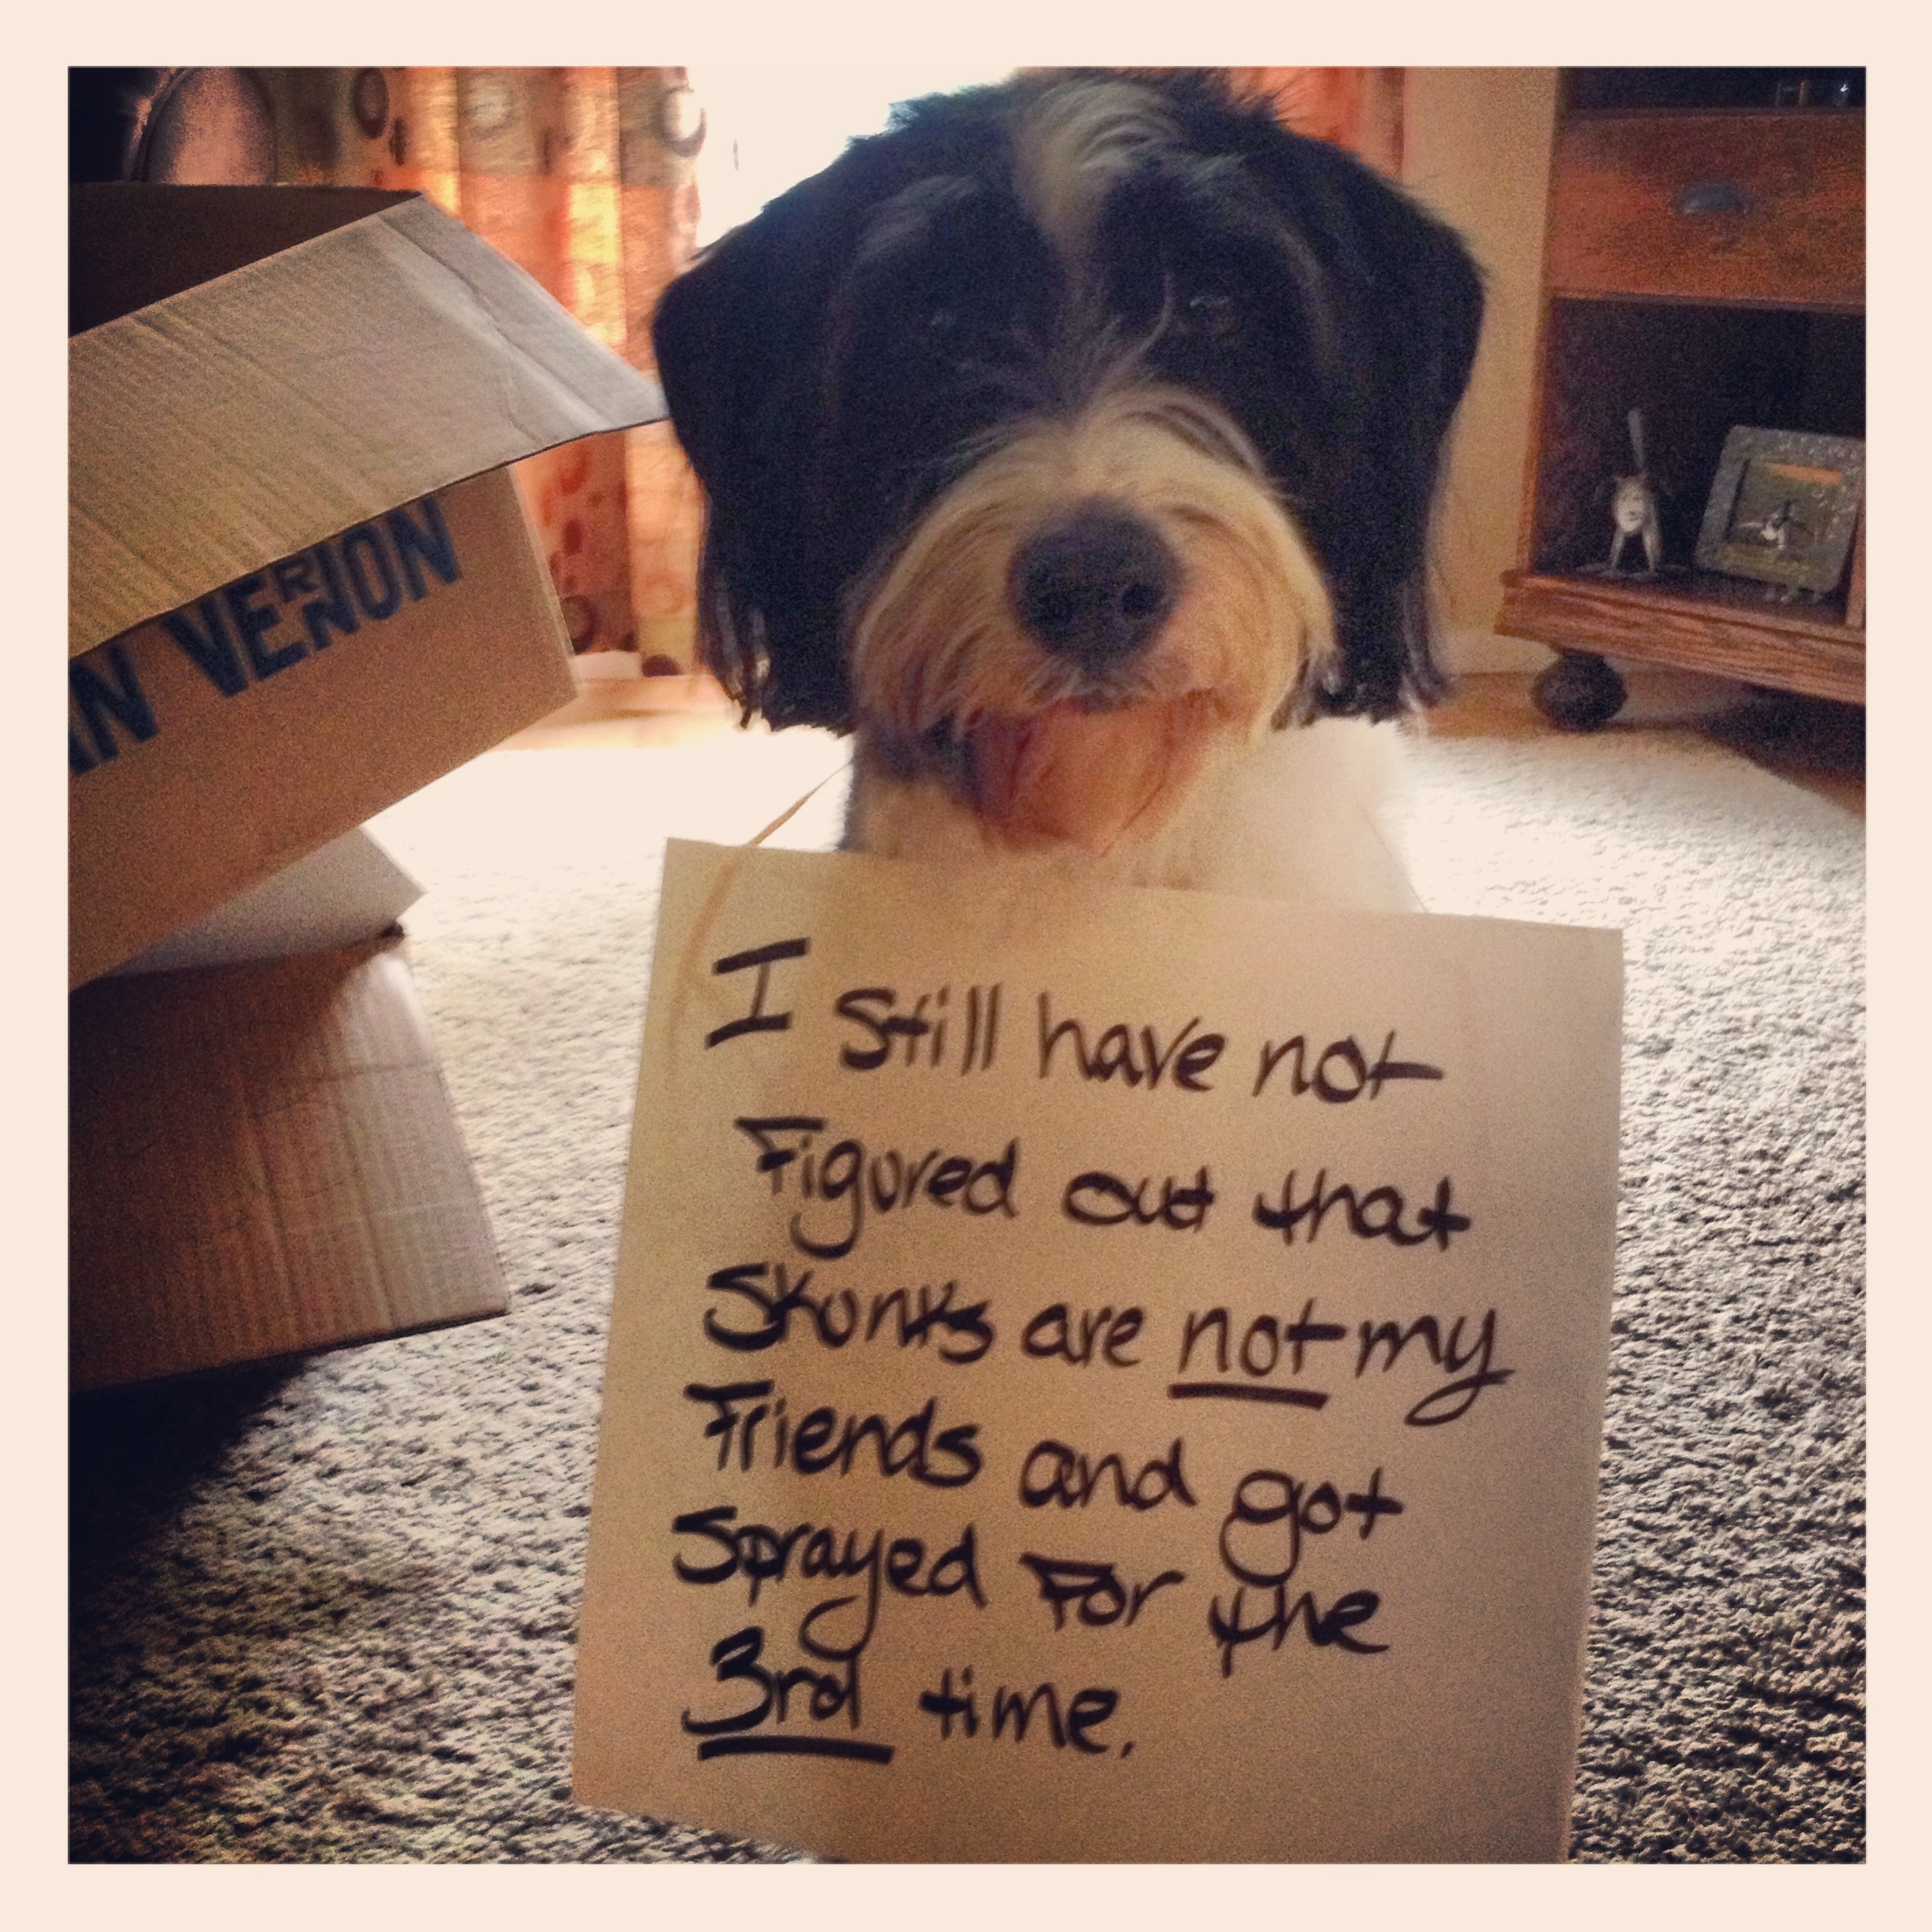 AN VERNON
I Still have not
Figured out that
Skunks are not my
Friends and got
Sprayed For the
3rd time.